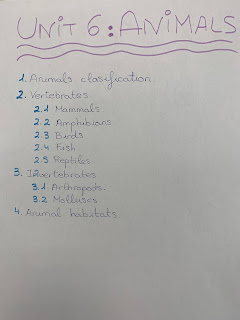 UNIT 6: ANIMALS
1. Animals clasification
2. Vertebrates
2.1 Mammals
2.2 Amphibians
2.3 Birds
2.4 Fish
2.5 Reptiles
3. Invertebrates
3.1 Arthropods.
3.2 Molluscs.
4. Animal habitats